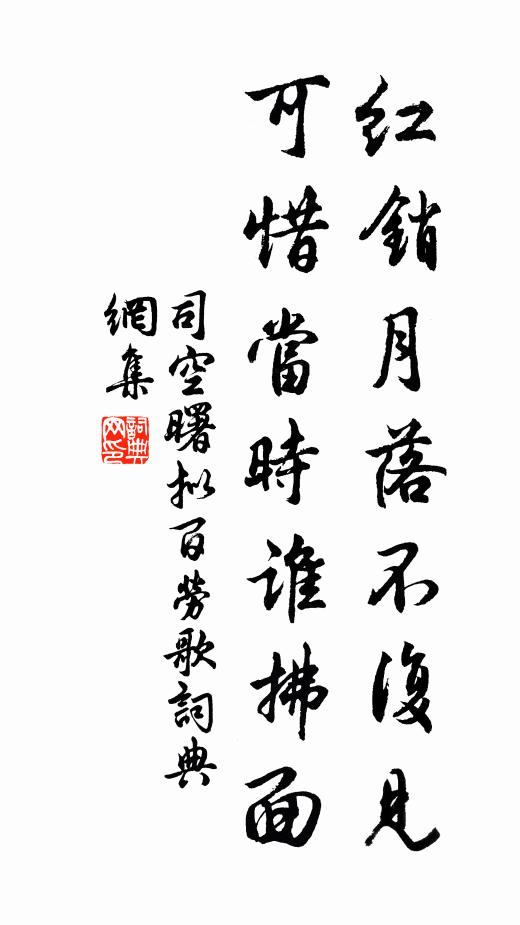 红銷月落不復見
可惜當時誰拂面
司空曙拟百勞歌詞典
網集
詞典网印